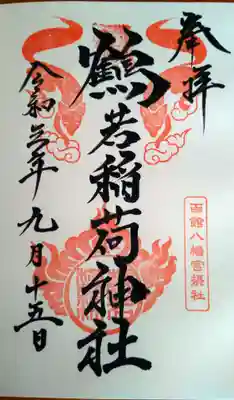 奉拝
鶴若稲荷神社
令和六年九月十五日
函館八幡宮摂社